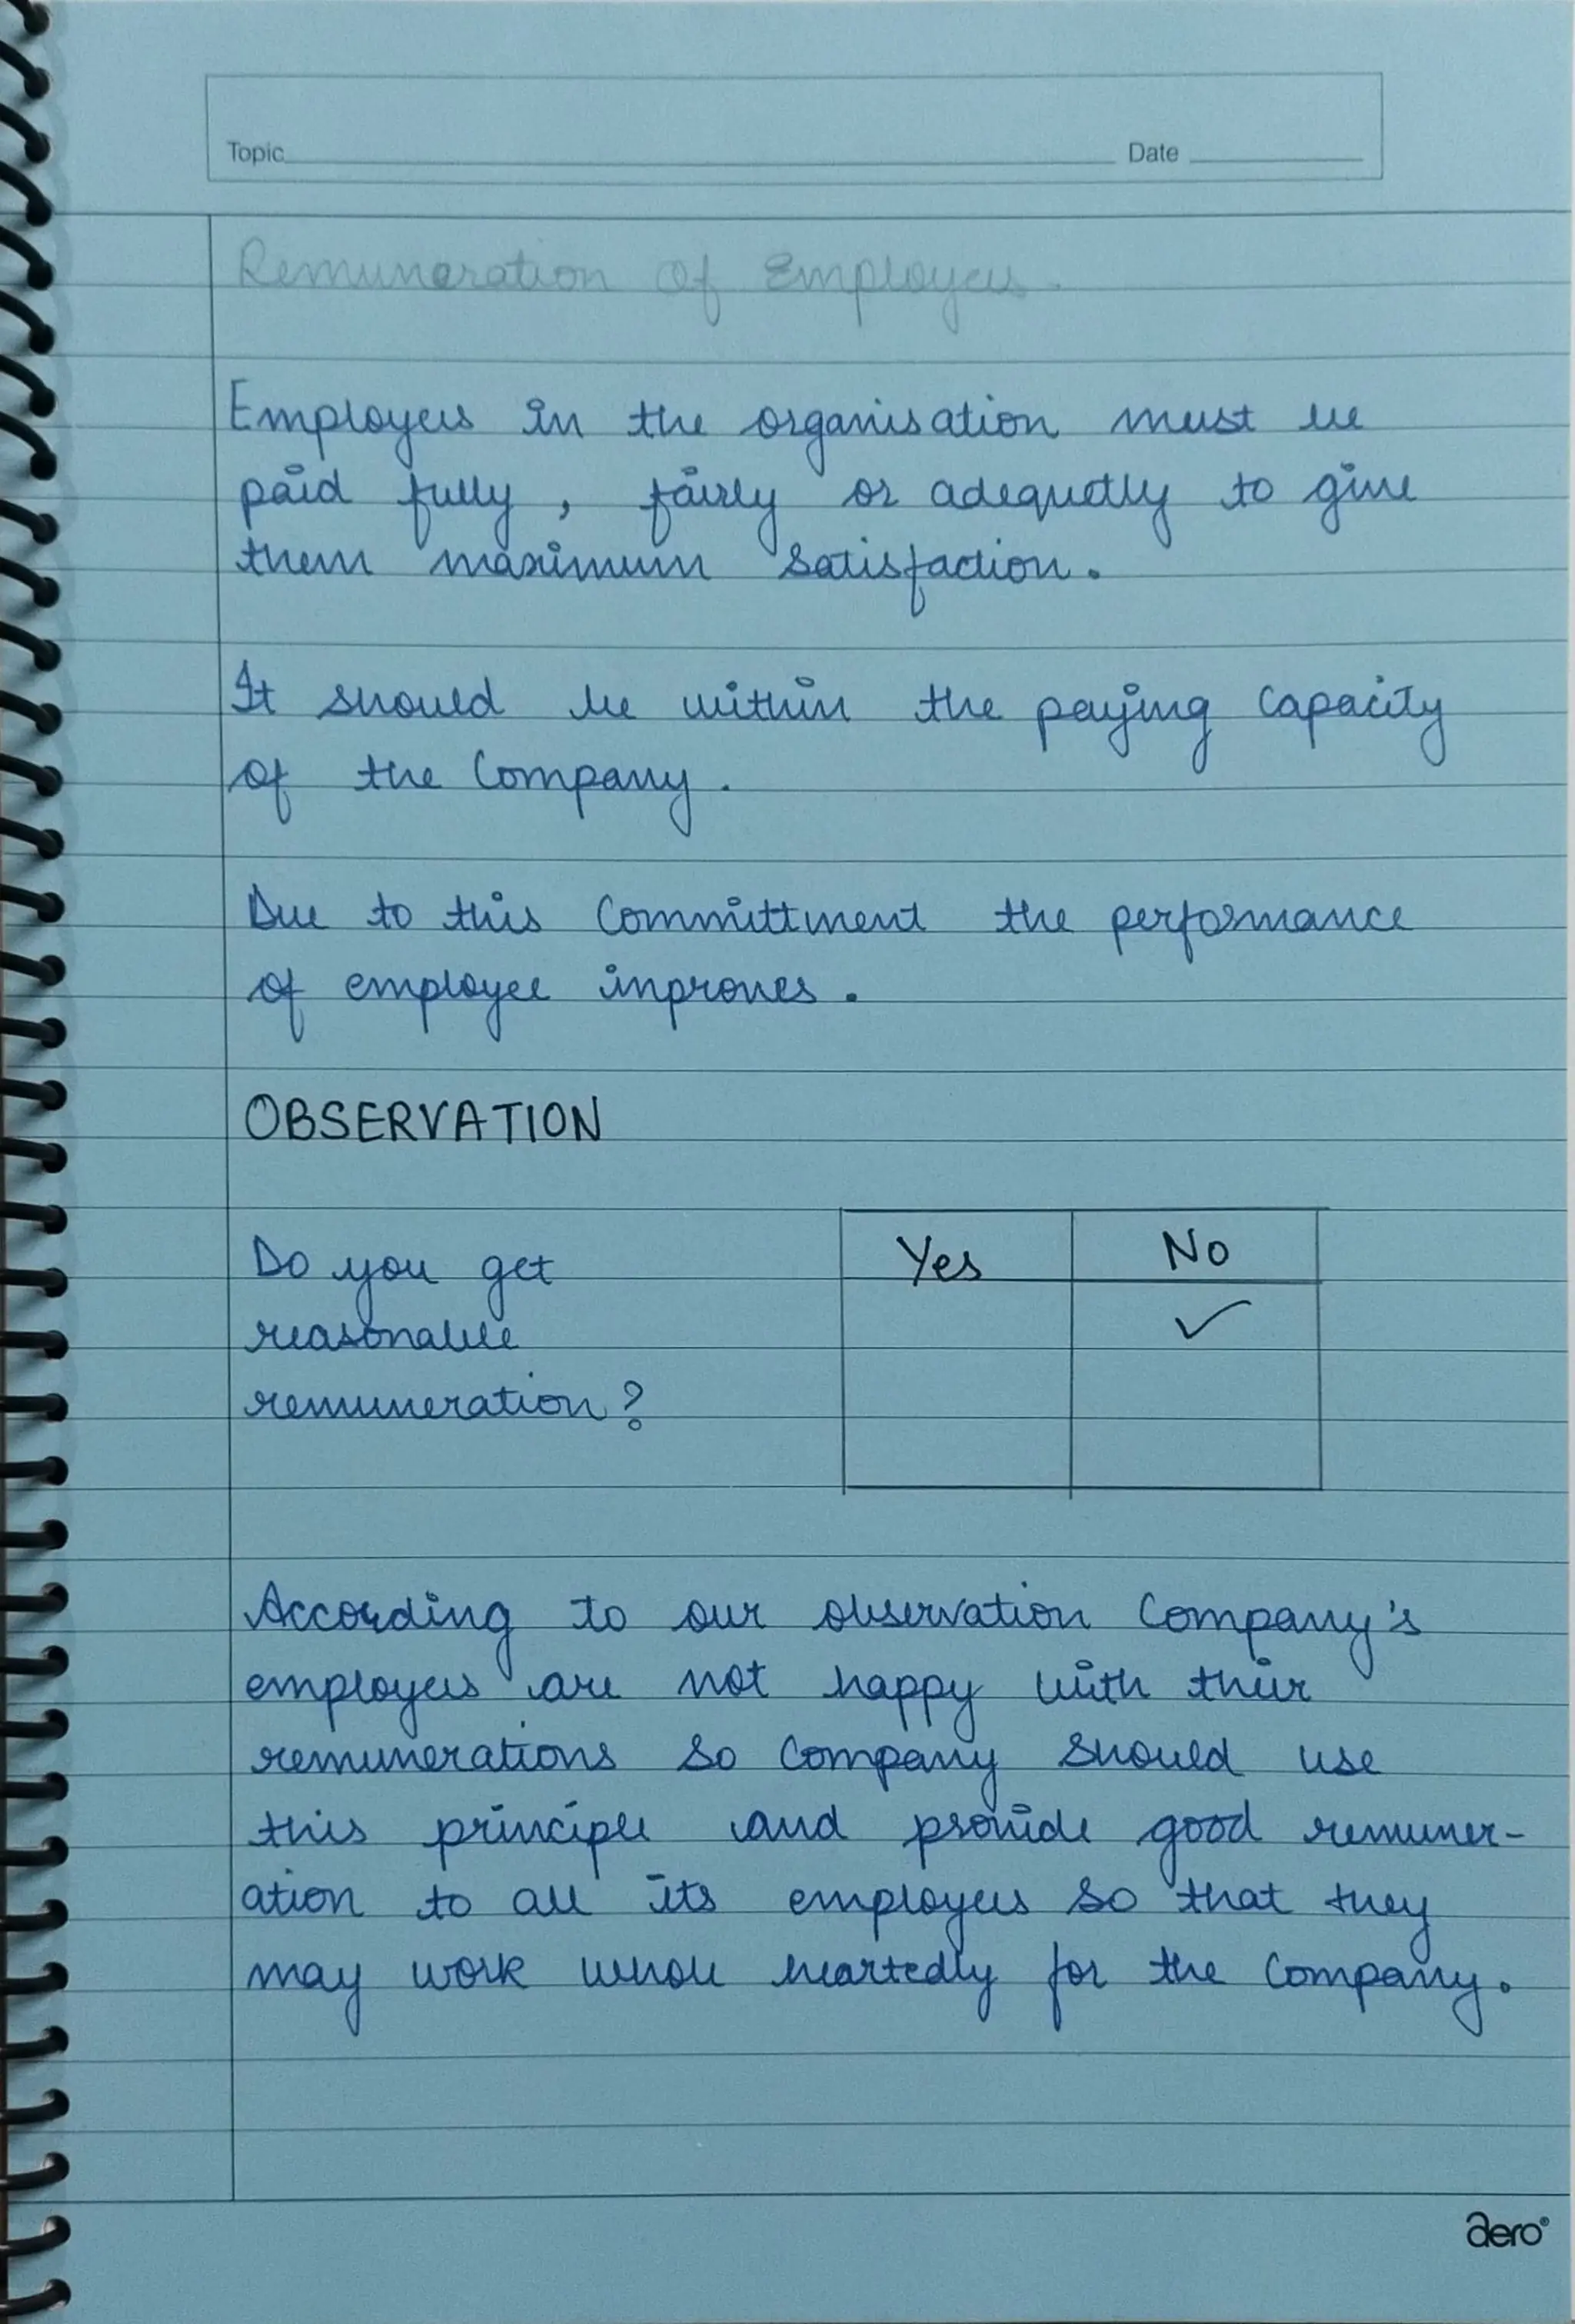 Topic Date
Remuneration of Employees.
Employees in the organisation must be
paid fully, fairly or adequetly to give
them maximum satisfaction.
It should be within the paying capacity
of the Company.
Due to this Committment the performance
of employee inproves.
OBSERVATION
Do you get
reasonable
remuneration?
Yes No
✓
According to our observation Company's
employees are not happy with their
remunerations so Company should use
this principle and provide good remuner-
ation to all its employees so that they
may work whole heartedly for the Company.
aero®